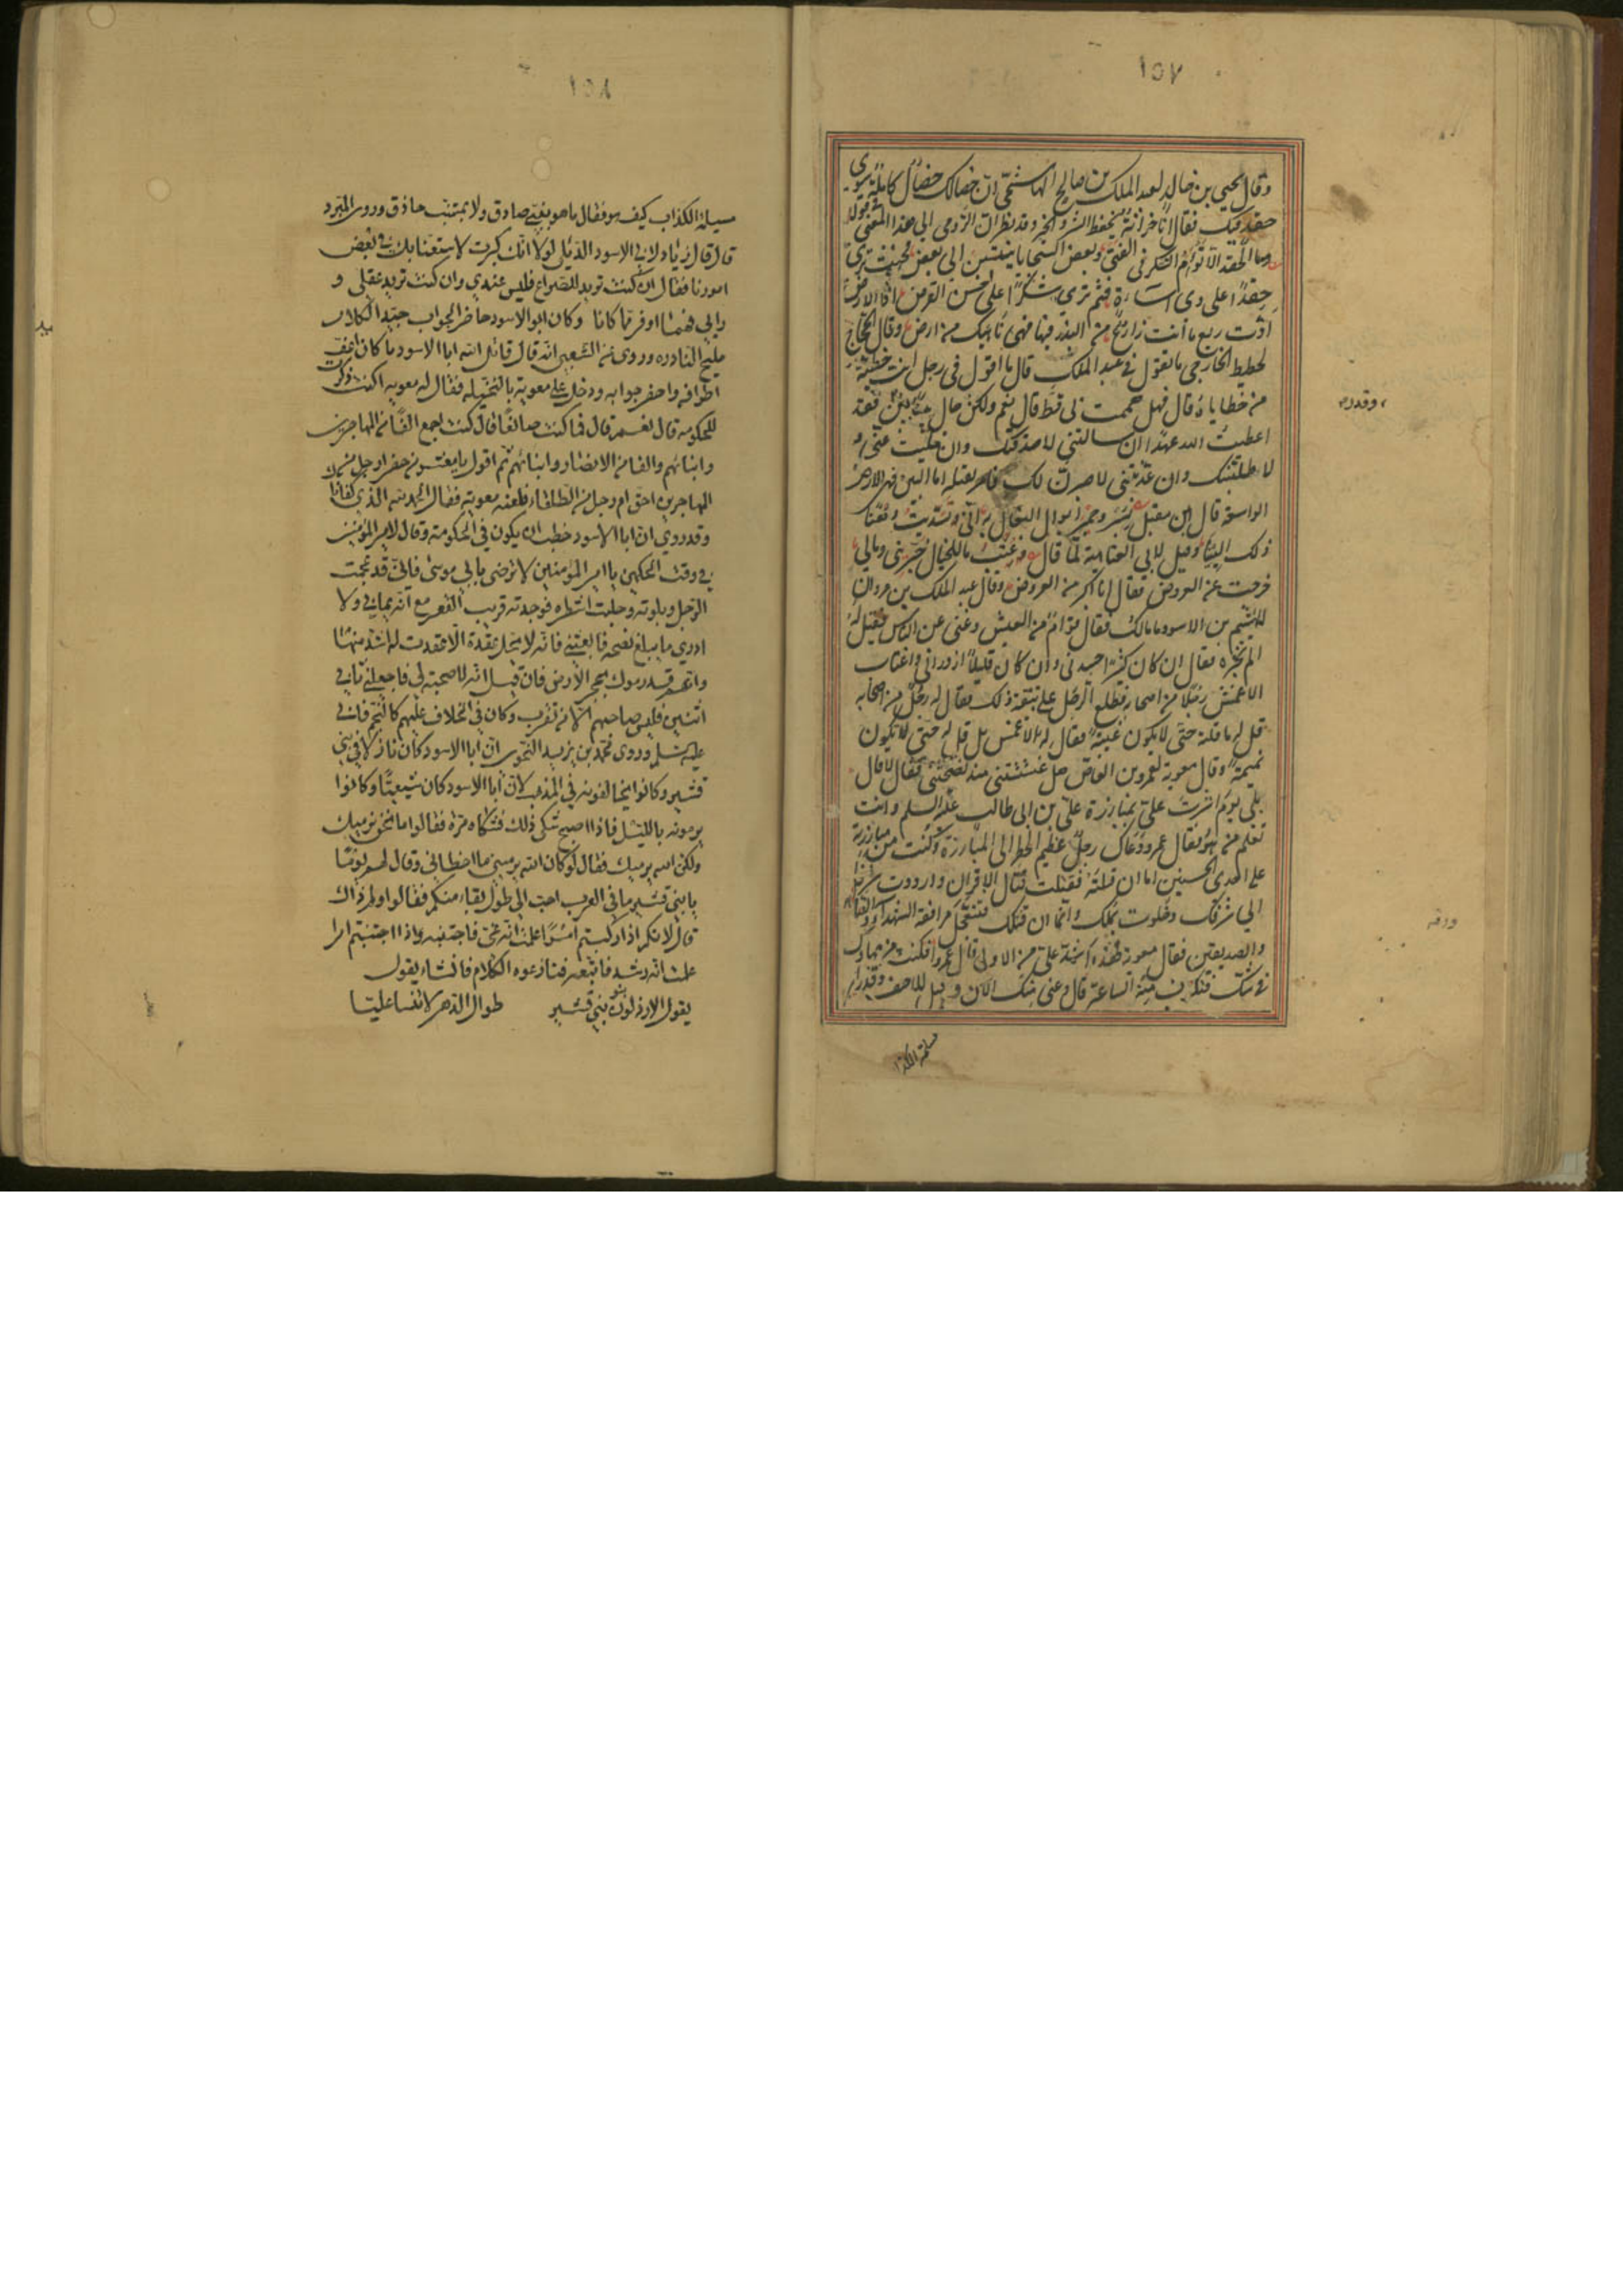 ١٥٧
وقال يحيى بن خالد لعبد الملك بن صالح الهاشمي ان خصالك خصال كاملة سوى
حقد فيك فقال انا خزانة تحفظ الشر والخير وقد نظر ابن الرومي الى هذا المعنى فقال
وما الحقد الا توأم الشكر في الفتى وبعض السجايا ينتسبن الى بعض فحيث ترى
حقدا على ذي اساءة فثم ترى شكرا على حسن القرض اذا الارض
ادت ريع ما انت زارع من البذر فيها فهي ناهيك من ارض وقال الحجاج
لحطيط الخارجي ما تقول في عبد الملك قال ما اقول في رجل انت خطيئة
من خطاياه قال فهل هممت بي قط قال نعم ولكن حال بيننا بين فقد
اعطيت الله عهدا ان سالتني لاصدقنك وان خليت عني
لاطلبنك وان عذبتني لاصبرن لك فامر بقتله اما البين فهي الارض
الواسعة قال ابن مقبل بسرو حمير ابوال البغال به انى وتسديت وهنا
ذلك البينا وقيل لابي العتاهية لما قال عتب ما للخيال خبريني ومالي
خرجت عن العروض فقال انا اكبر من العروض وقال عبد الملك بن مروان
للهيثم بن الاسود ما مالك فقال قوام من العيش وغنى عن الناس فقيل له
لم لم تخبره فقال ان كان كثيرا حسدني وان كان قليلا ازدراني واغتاب
الاعمش رجلا من اصحابه فطلع الرجل على تبقة ذلك فقال له رجل من اصحابه
قل له ما قلت حتى لا يكون غيبة فقال له الاعمش بل قل له حتى لا تكون
نميمة وقال معوية لعمرو بن العاص هل غششتني منذ نصحتني فقال لا قال
بلى يوم اشرت علي بمبارزة علي بن ابي طالب عليه السلم وانت
تعلم من هو فقال عمرو دعاك رجل عظيم الخطر الى المبارزة وكنت من مبارزته
على احدى الحسنيين اما ان قتلته فقتلت قتال الاقران وازددت شرفا
الى شرفك وخلوت بملك واما ان قتلك فتتعجل مرافقة الشهداء
والصديقين فقال معوية لهذه اشد علي من الاولى قال عمرو افكنت من جهادك
في شك فتكون منه الساعة قال دعني منك الان وقيل للاحنف وقد راى
مسيلمة الكذا
وقدره
ورقه
١٥٨
مسيلمة الكذاب كيف هو فقال ما هو بنبي صادق ولا بمتنب حاذق وروى المبرد
قال قال زياد لابي الاسود الدئلي لولا انك كبرت لاستعنا بك في بعض
امورنا فقال ان كنت تريد للصراع فليس عندي وان كنت تريد عقلي و
رايي فهما اوفر مما كانا وكان ابو الاسود حاضر الجواب جيد الكلام
مليح النادرة وروى عن الشعبي انه قال قاتل الله ابا الاسود ما كان اعف
اطرافه واحضر جوابه ودخل على معوية بالنخيلة فقال له معوية اكنت ذكرت
للحكومة قال نعم قال فما كنت صانعا قال كنت اجمع الفا من المهاجرين
وابنائهم والفا من الانصار وابنائهم ثم اقول يا معشر من حضر ارجل من
المهاجرين احق ام رجل من الطلقاء فلعنه معوية فقال الحمد لله الذي كفانا
وقد روي ان ابا الاسود خطب ان يكون في الحكومة وقال لامير المؤمنين
في وقت الحكمين يا امير المؤمنين لا ترضى بابي موسى فاني قد عجمت
الرجل وبلوته وحلبت اشطره فوجدته قريب القعر مع انه يماني ولا
ادري ما يبلغ نصحه فابعثني فانه لا يحل عقدة الا عقدت له اشد منها
وانهم قد رموك بحجر الارض فان قيل انه لا صحبة لي فاجعلني ثاني
اثنين فليس صاحبهم الا من تقرب وكان في الخلاف عليهم كالنجم فابى
عليه السلم وروى محمد بن يزيد النحوي ان ابا الاسود كان نازلا في بني
قشير وكانوا يخالفونه في المذهب لان ابا الاسود كان شيعيا وكانوا
يرمونه بالليل فاذا اصبح شكى ذلك فشكاه مرة فقالوا ما نحن نرميك
ولكن الله يرميك فقال لو كان الله يرميني ما اخطاني وقال لهم يوما
يا بني قشير ما في العرب احب الي طول بقاء منكم فقالوا ولم ذاك
قال لانكم اذا ركبتم امرا علمت انه غي فاجتنبه واذا اجتنبتم امرا
علمت انه رشد فاتبعه فنازعوه الكلام فانشاء يقول
يقول الارذلون بنو بني قشير طوال الدهر لا تنسا عليا